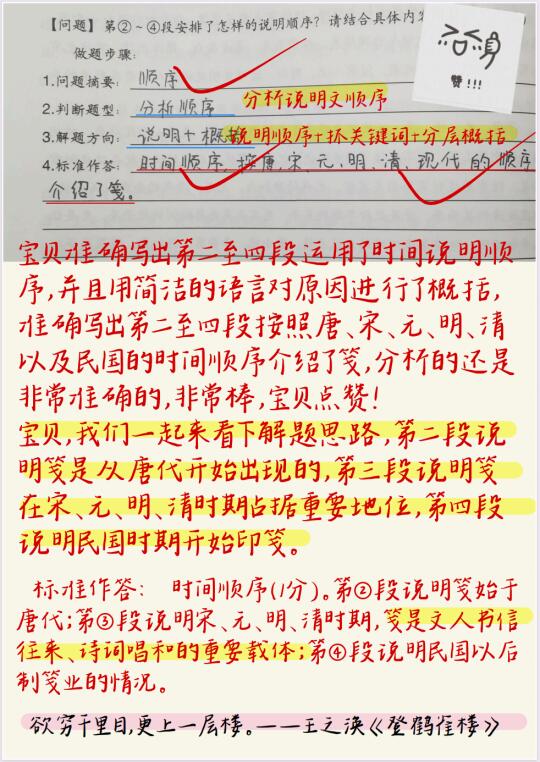 【问题】第②~④段安排了怎样的说明顺序?请结合具体内
做题步骤:
1.问题摘要: 顺序
2.判断题型: 分析顺序 分析说明文顺序
3.解题方向: 说明+概括 说明顺序+抓关键词+分层概括
4.标准作答: 时间顺序,按唐、宋、元、明、清、现代的顺序
介绍了笺。
赞!!!
宝贝准确写出第二至四段运用了时间说明顺
序,并且用简洁的语言对原因进行了概括,
准确写出第二至四段按照唐、宋、元、明、清
以及民国的时间顺序介绍了笺,分析的还是
非常准确的,非常棒,宝贝点赞!
宝贝,我们一起来看下解题思路,第二段说
明笺是从唐代开始出现的,第三段说明笺
在宋、元、明、清时期占据重要地位,第四段
说明民国时期开始印笺。
标准作答: 时间顺序(1分)。第②段说明笺始于
唐代;第③段说明宋、元、明、清时期,笺是文人书信
往来、诗词唱和的重要载体;第④段说明民国以后
制笺业的情况。
欲穷千里目,更上一层楼。——王之涣《登鹳雀楼》